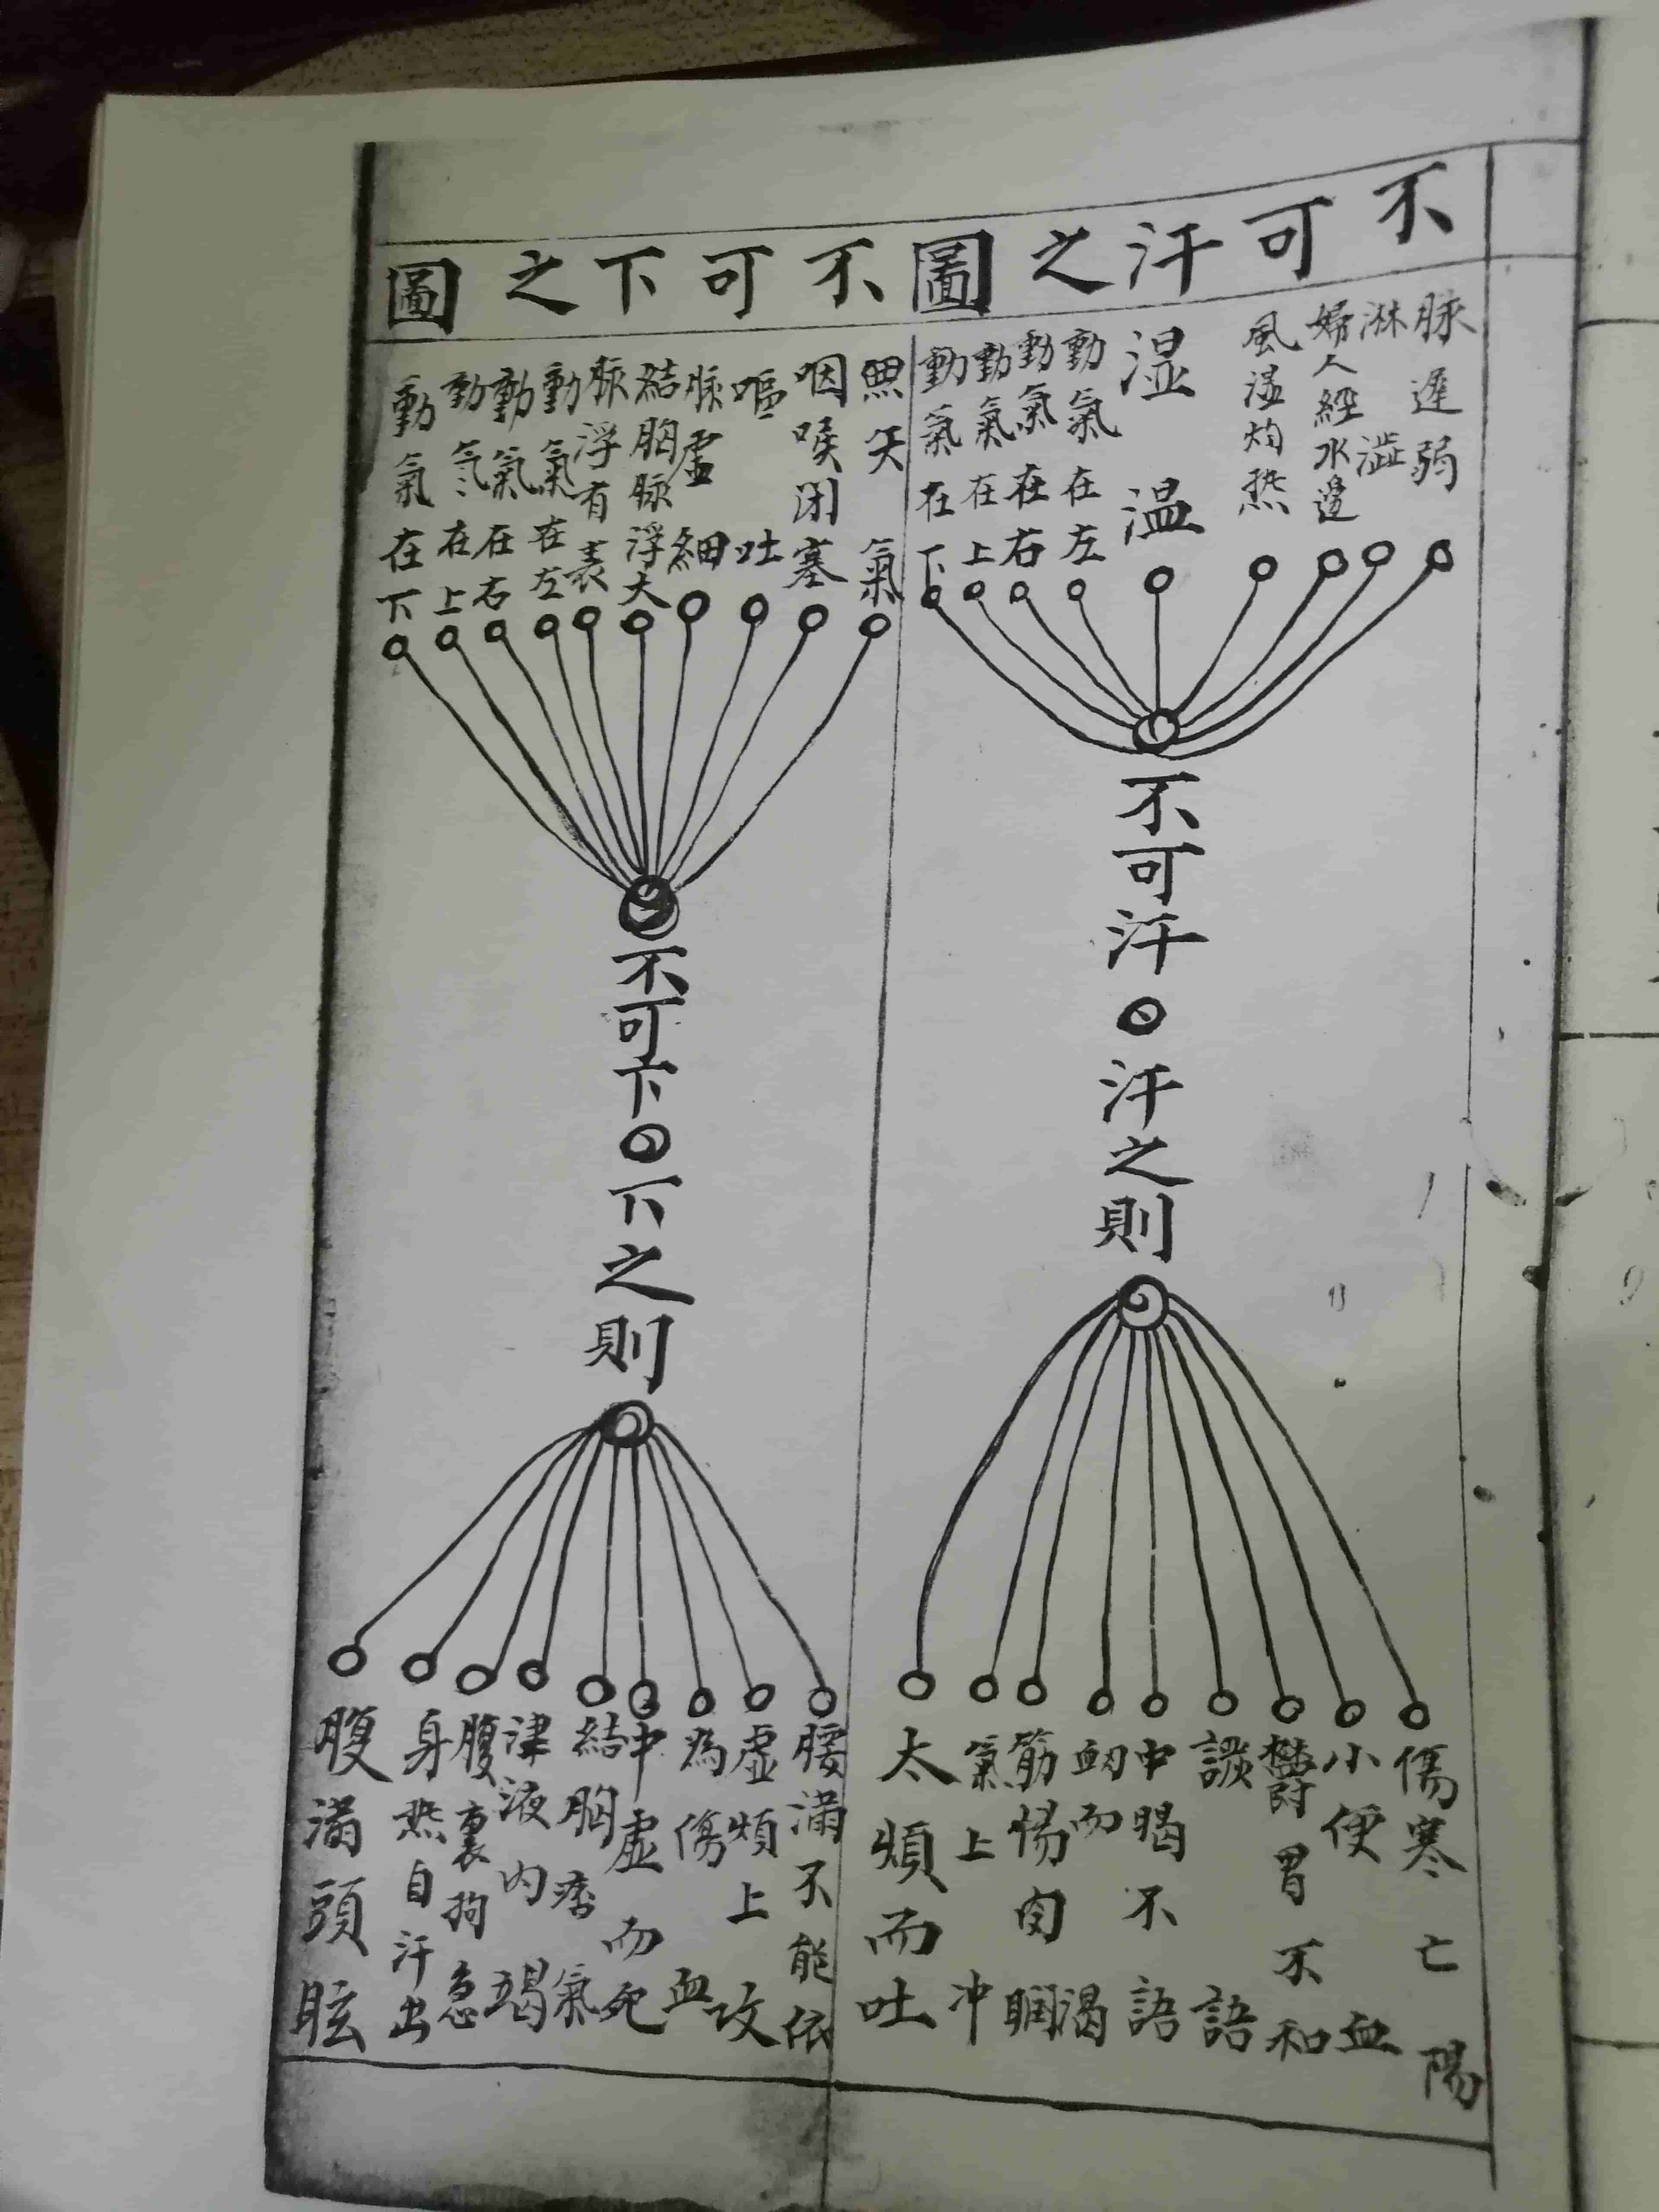 不可汗之圖
脉遲弱
淋澁
婦人經水邊
風湿灼热
湿温
動氣在左
動氣在右
動氣在上
動氣在下
不可汗
汗之則
傷寒亡陽
小便血
欝冒不和
語
中暍不語
衂而渴
筋惕肉瞤
氣上冲
太煩而吐
不可下之圖
無天氣
咽喉闭塞
嘔吐
脉虚細
結胸脉浮大
脈浮有表
動氣在左
動氣在右
動氣在上
動氣在下
不可下
下之則
腰満不能依
虚煩上攻
為傷血
中虚而死
結胸痞氣
津液内竭
腹裏拘急
身热自汗出
腹满頭眩